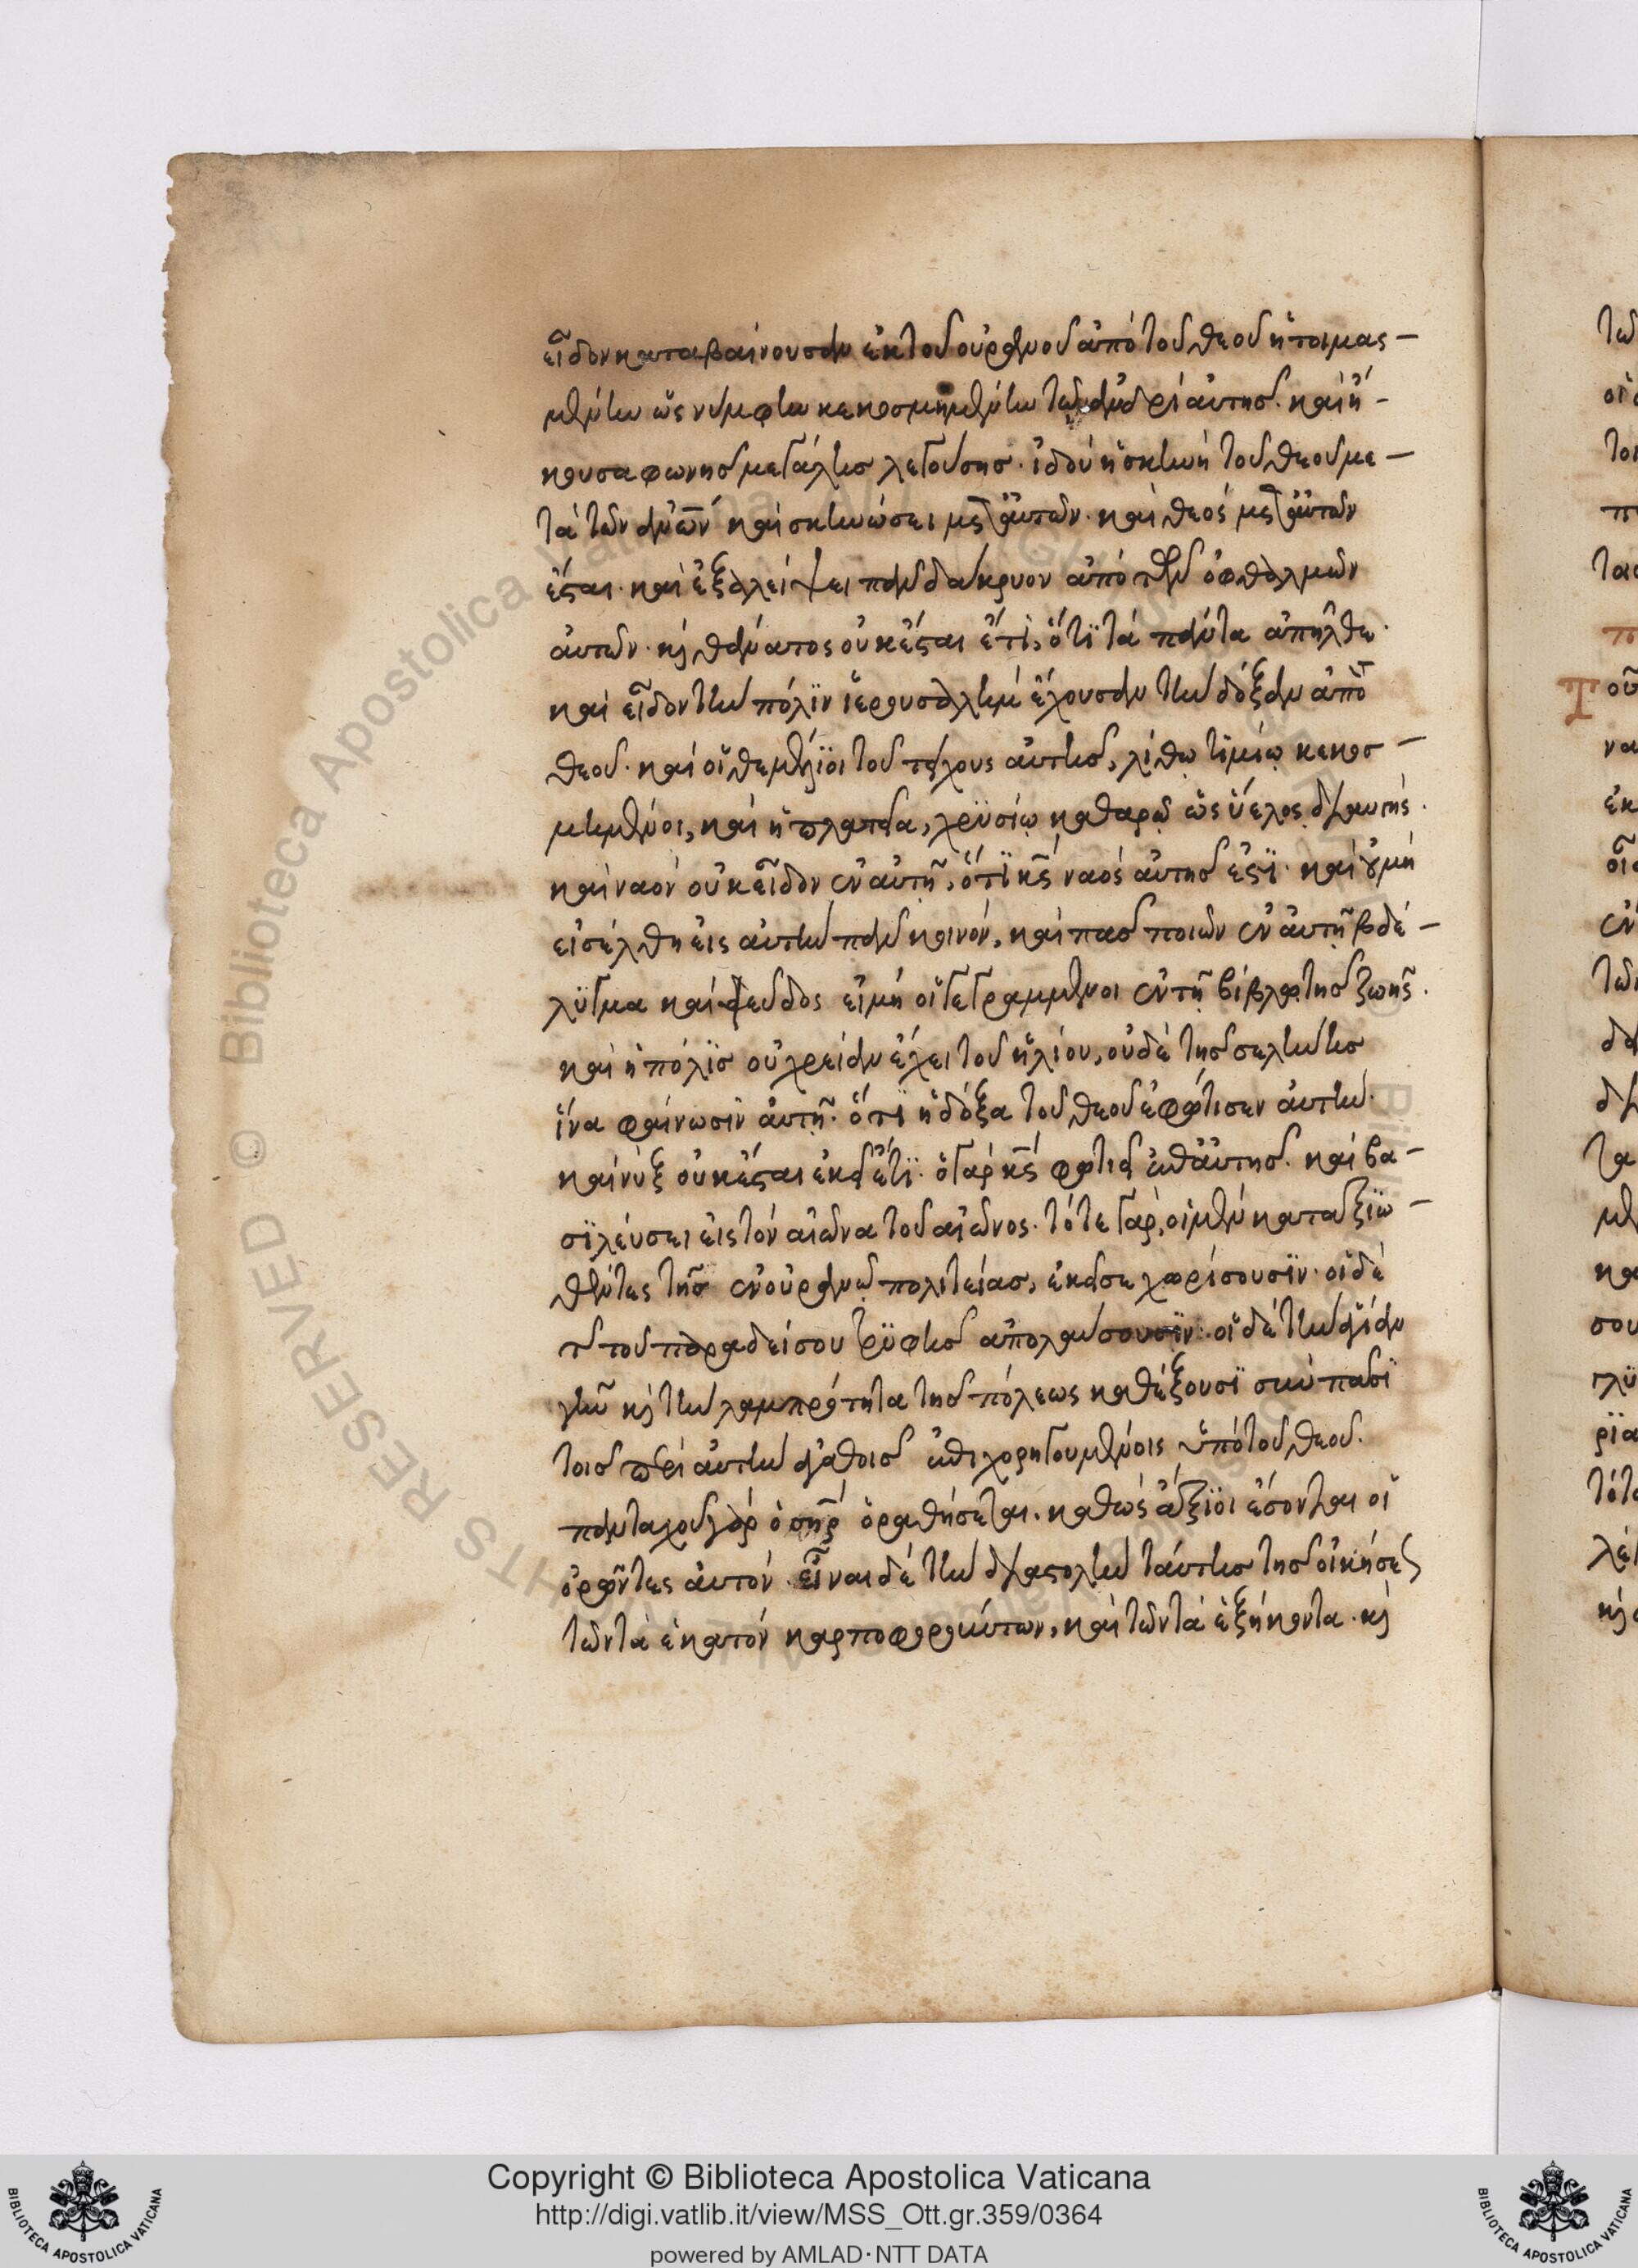 εἶδον καταβαίνουσαν ἐκ τοῦ οὐρανοῦ ἀπὸ τοῦ θεοῦ ἡτοιμασ-
μένην ὡς νύμφην κεκοσμημένην τῷ ἀνδρὶ αὐτῆς. καὶ ἤ-
κουσα φωνῆς μεγάλης λεγούσης. ἰδοὺ ἡ σκηνὴ τοῦ θεοῦ με-
τὰ τῶν ἀνῶν καὶ σκηνώσει μετ' αὐτῶν. καὶ θεὸς μετ' αὐτῶν
ἔσται. καὶ ἐξαλείψει πᾶν δάκρυον ἀπὸ τῶν ὀφθαλμῶν
αὐτῶν. κ̀ θάνατος οὐκ ἔσται ἔτι, ὅτϊ τὰ πάντα ἀπῆλθον.
καὶ εἶδον τὴν πόλϊν ἱερουσαλὴμ ἔχουσαν τὴν δόξαν ἀπὸ
θεοῦ. καὶ οἱ θεμέλϊοι τοῦ τείχους αὐτῆς, λίθῳ τιμίῳ κεκοσ-
μημένοι, καὶ ἡ πλατεῖα, χρϋσίῳ καθαρῷ ὡς ὕελος διαυγής.
καὶ ναὸν οὐκ εἶδον ἐν αὐτῇ, ὅτϊ κς ναὸς αὐτῆς ἐστϊ. καὶ οὐ μὴ
εἰσέλθη εἰς αὐτὴν πᾶν κοινόν, καὶ πᾶς ποιῶν ἐν αὐτῇ βδέ-
λϋγμα καὶ ψεῦδος εἰμὴ οἱ γεγραμμένοι ἐν τῇ βίβλῳ τῆς ζωῆς.
καὶ ἡ πόλϊς οὐ χρείαν ἔχει τοῦ ἡλίου, οὐδὲ τῆς σελήνης
ἵνα φαίνωσϊν αὐτῇ. ὅτϊ ἡ δόξα τοῦ θεοῦ ἐφώτισεν αὐτήν.
καὶ νὺξ οὐκ ἔσται ἐκεῖ ἔτϊ. ὁ γὰρ κς φωτιεῖ ἐπ' αὐτῆς. καὶ βα-
σϊλεύσει εἰς τὸν αἰῶνα τοῦ αἰῶνος. τότε γὰρ, οἱ μὲν καταξϊω-
θέντες τῆς ἐν οὐρανῷ πολιτείας, ἐκεῖσε χωρίσουσϊν. οἱ δὲ
τ τοῦ παραδείσου τρϋφῆς ἀπολαύσουσϊν. οἱ δὲ τὴν ἁγίαν
γῆν κ̀ τὴν λαμπρότητα τῆς πόλεως καθέξουσϊ σὺν πᾶσϊ
τοῖς περὶ αὐτὴν ἀγαθοῖς ἐπιχορηγουμένοις ὑπὸ τοῦ θεοῦ.
πανταχοῦ γὰρ ὁ σηρ ὁραθήσεται. καθὼς ἄξϊοι ἔσονται οἱ
ὁρῶντες αὐτόν. εἶναι δὲ τὴν διαστολὴν ταύτης τῆς οἰκήσεως
τῶν τὰ ἑκατὸν καρποφορούντων, καὶ τῶν τὰ ἑξήκοντα. κ̀
Copyright © Biblioteca Apostolica Vaticana
http://digi.vatlib.it/view/MSS_Ott.gr.359/0364
powered by AMLAD·NTT DATA